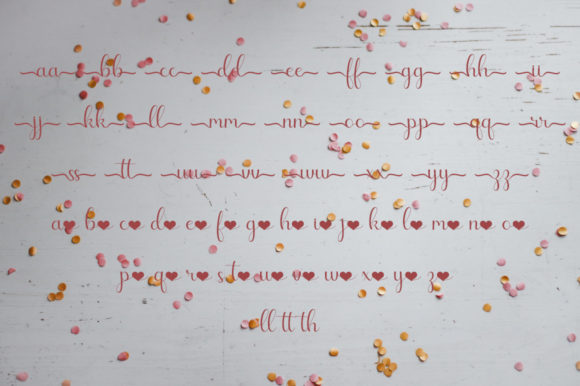 aa bb cc dd ee ff gg hh ii
jj kk ll mm nn oo pp qq rr
ss tt uu vv ww xx yy zz
a♥ b♥ c♥ d♥ e♥ f♥ g♥ h♥ i♥ j♥ k♥ l♥ m♥ n♥ o♥
p♥ q♥ r♥ s♥ t♥ u♥ v♥ w♥ x♥ y♥ z♥
ll tt th